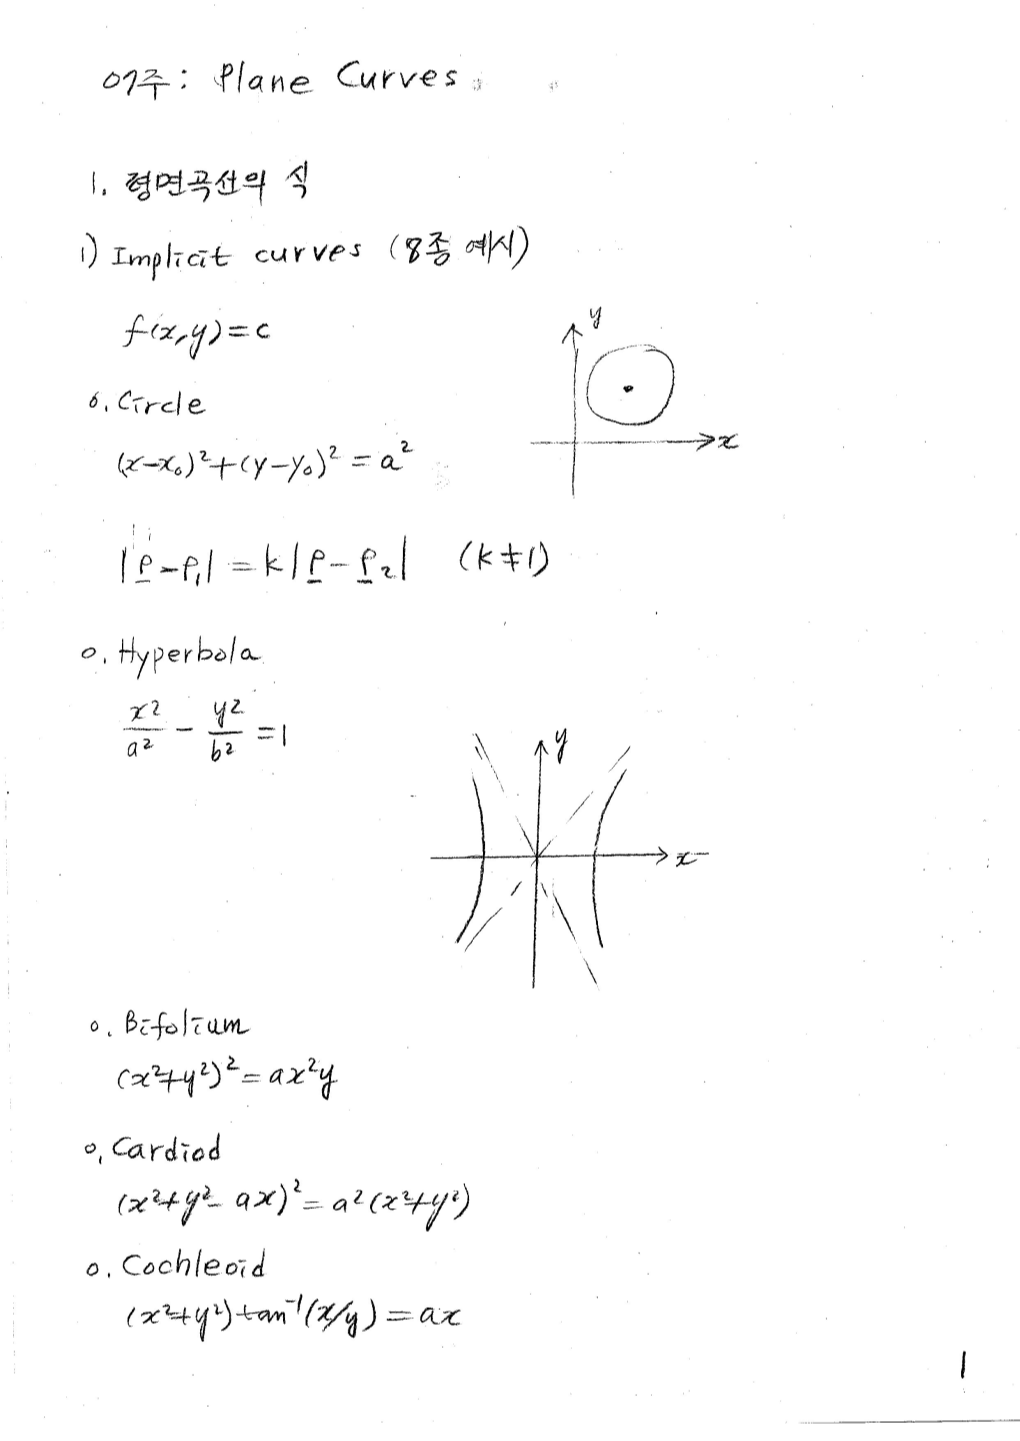 07주: Plane Curves
1. 평면곡선의 식
1) Implicit curves (8종 예시)
f(x,y)=c
y
x
o. Circle
(x-x₀)²+(y-y₀)²=a²
|ρ-ρ₁|=k|ρ-ρ₂| (k≠1)
o. Hyperbola
x²/a² - y²/b² =1
y
x
o. Bifolium
(x²+y²)²=ax²y
o. Cardiod
(x²+y²-ax)²=a²(x²+y²)
o. Cochleoid
(x²+y²)tan⁻¹(x/y)=ax
1